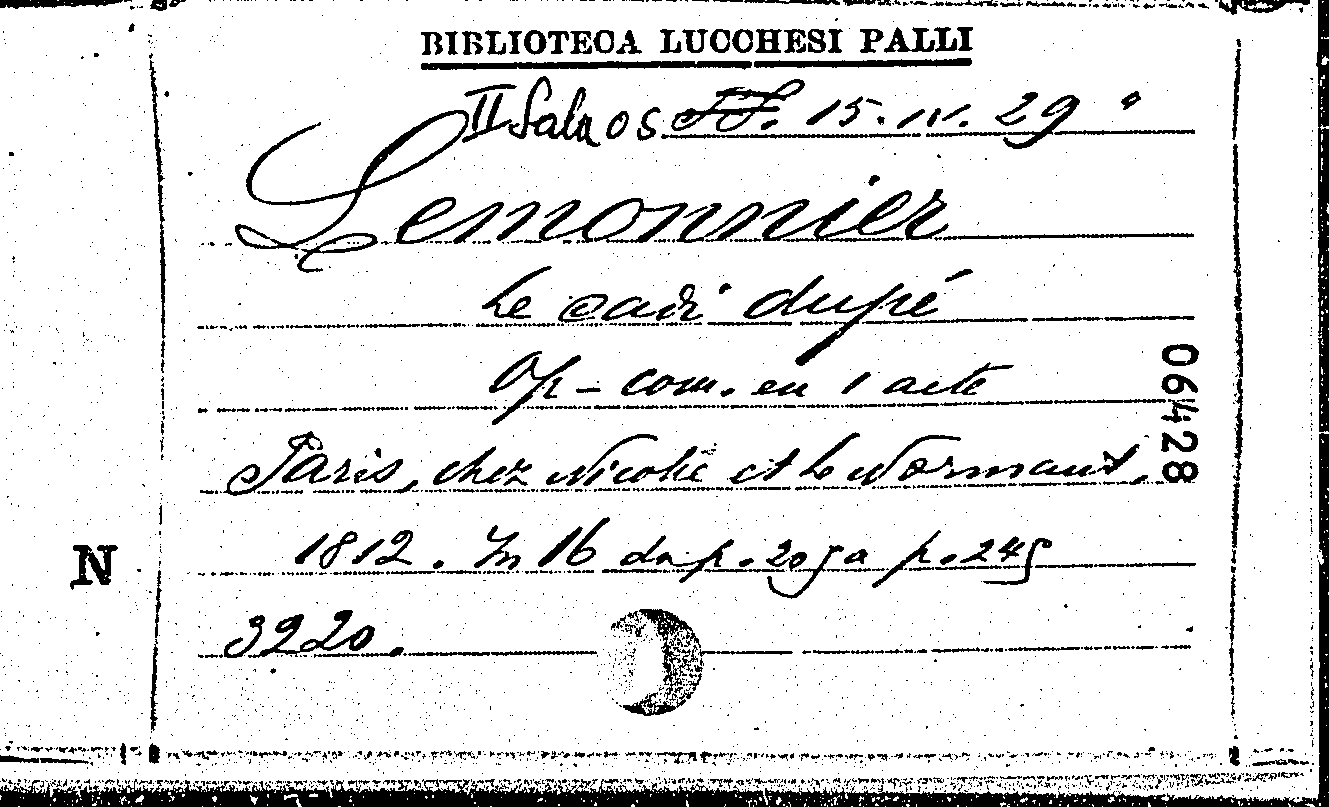 BIBLIOTECA LUCCHESI PALLI
II Sala OS 15. IV. 29
Lemonnier
Le cadi dupé
Op-com. en 1 acte
Paris, chez Nicolle et Le Normant,
1812. In 16 da p. 205 a p. 245
3220.
N
06428